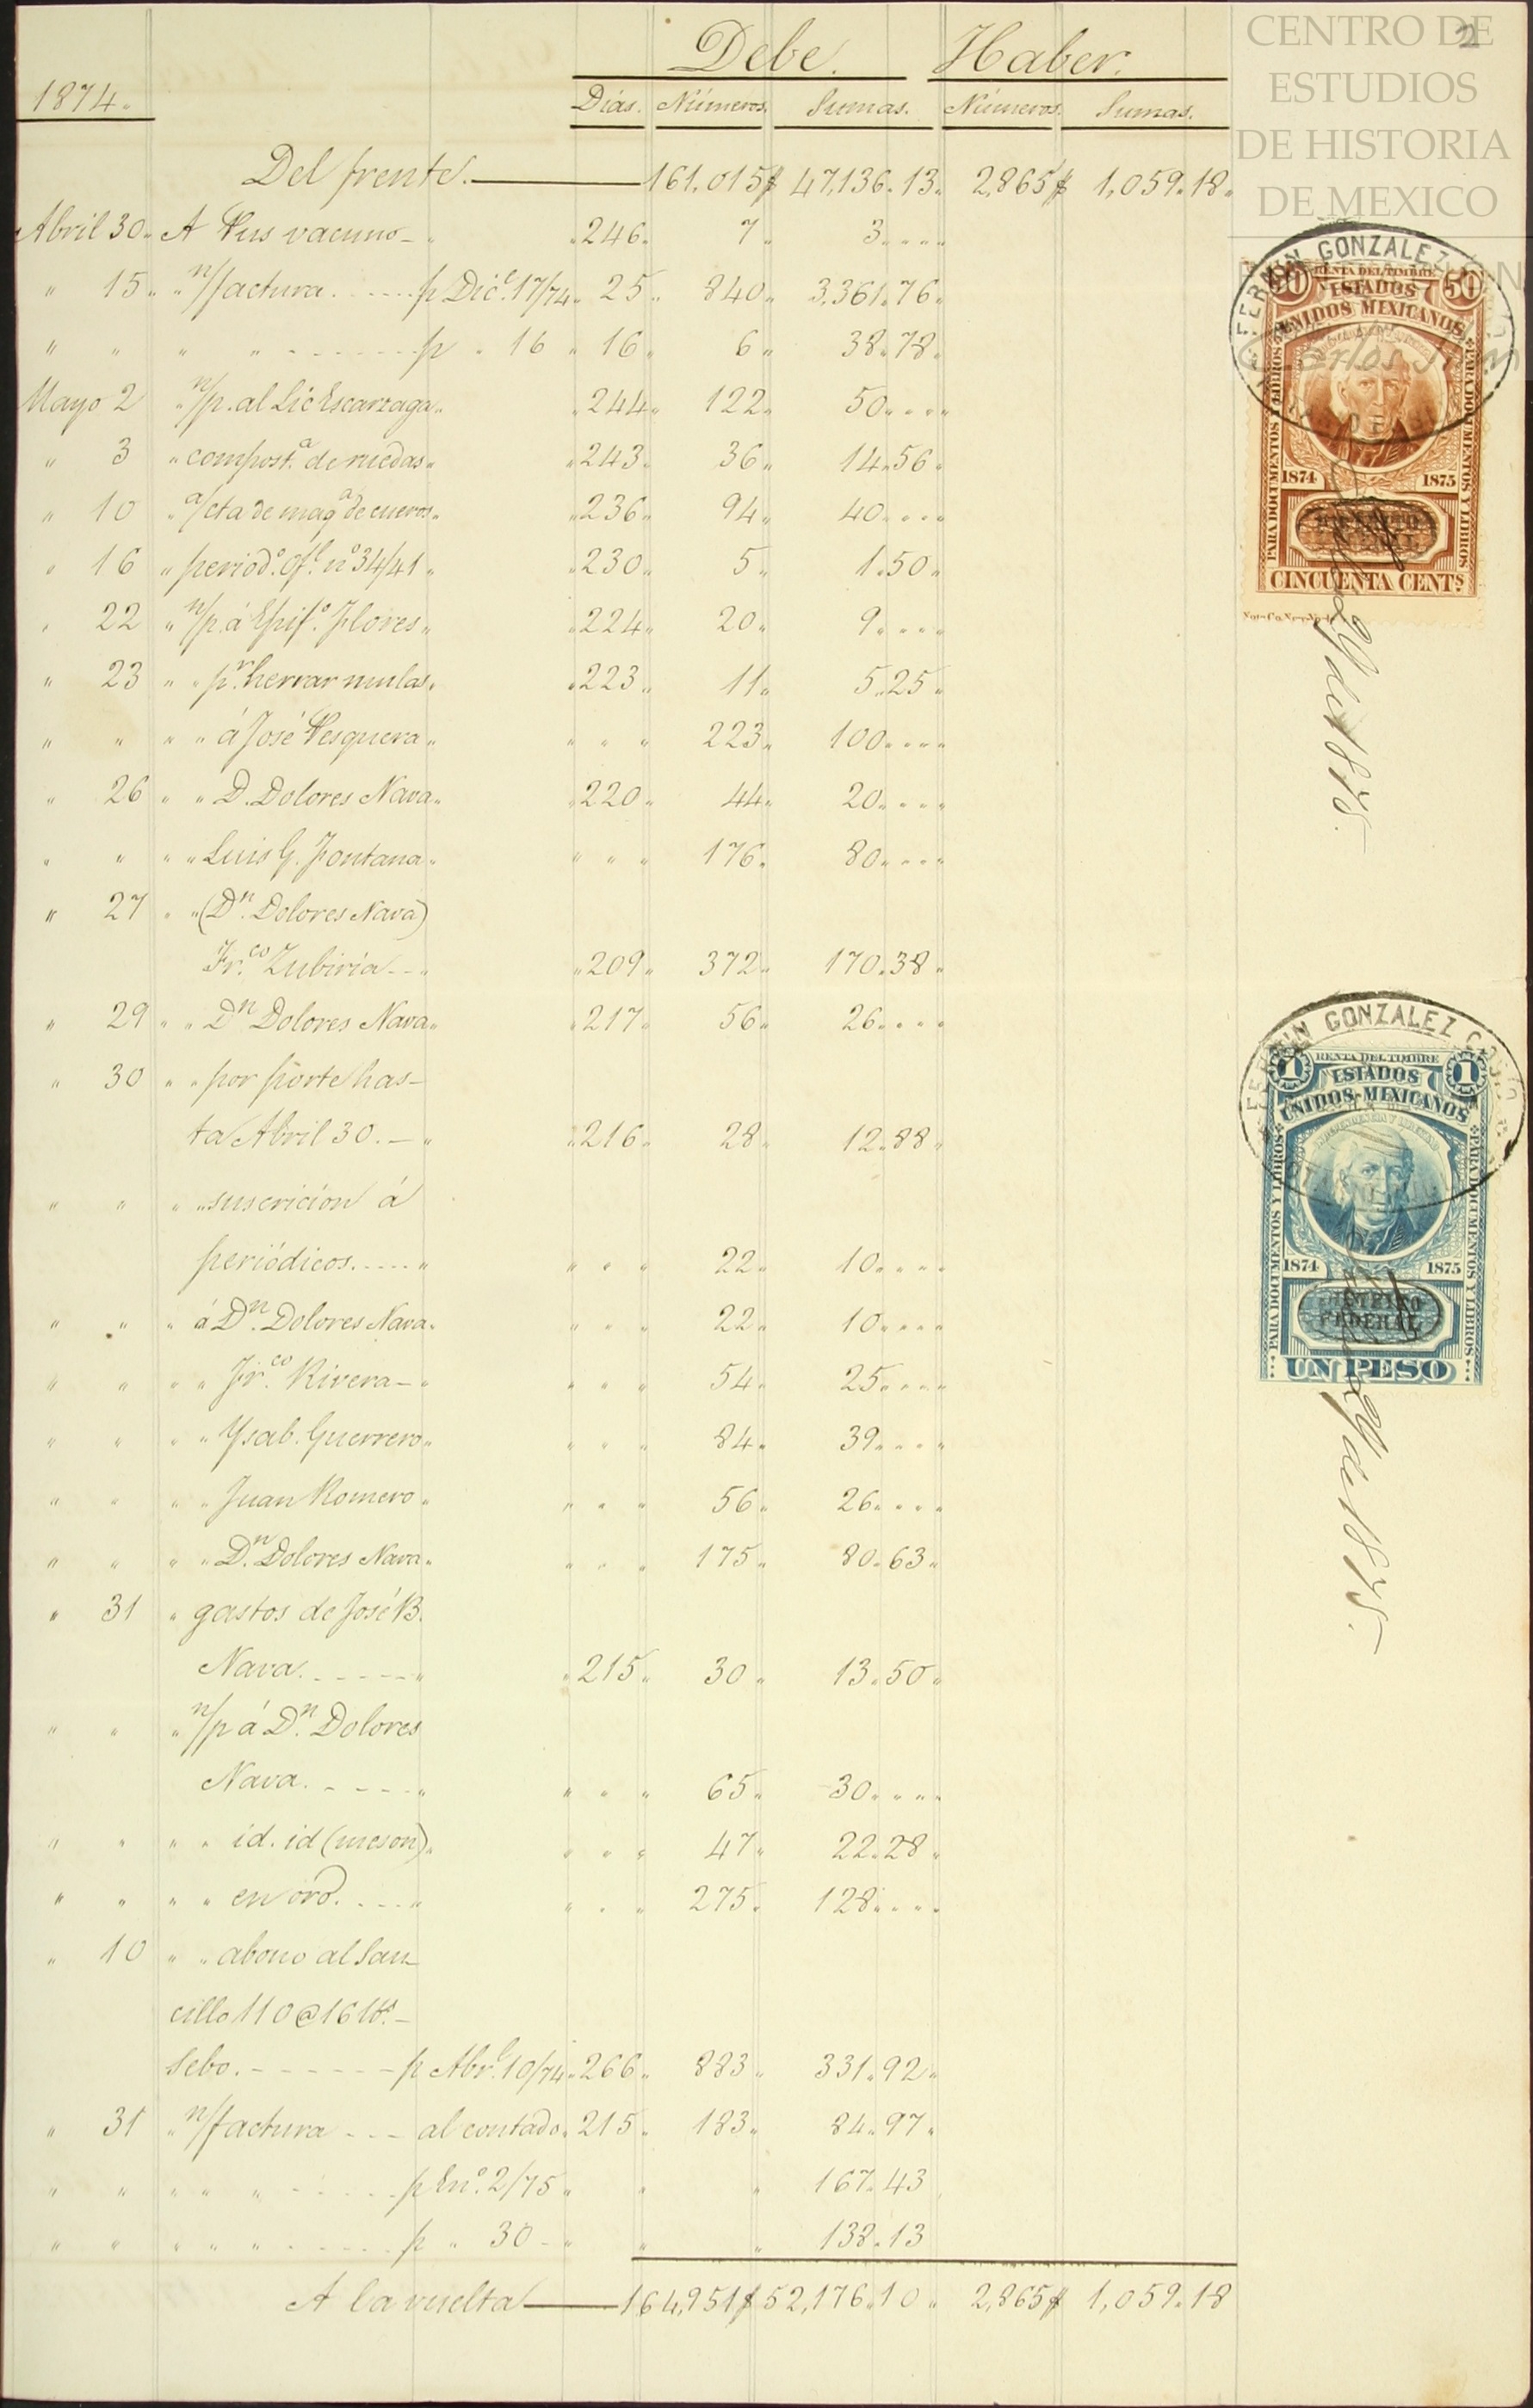 CENTRO DE
ESTUDIOS
DE HISTORIA
DE MEXICO
2
Debe. Haber.
1874. Dias. Números. Sumas. Números. Sumas.
Del frente. 161,015 $ 47,136. 13. 2,865 $ 1,059. 18.
Abril 30. A Pus vacuno - " 246. 7 " 3 " " "
" 15 " " n/factura. p Dice. 17/74 " 25 " 840 " 3,361. 76 "
" " " " p " 16 " 16 " 6 " 38. 78 "
Mayo 2 " n/p. al Lic Escarzaga " " 244 " 122 " 50 " " "
" 3 " compost.a de ruedas " " 243 " 36 " 14. 56 "
" 10 " a/cta de maqa de cueros " " 236 " 94 " 40 " " "
" 16 " period.o Ofl. no 34/41 " " 230 " 5 " 1. 50 "
" 22 " n/p. á Epif.o Flores " " 224 " 20 " 9 " " "
" 23 " " pr. herrar mulas " " 223 " 11 " 5. 25 "
" " " " á José Pesquera " " " " 223 " 100 " " "
" 26 " " D. Dolores Nava " " 220 " 44 " 20 " " "
" " " " Luis G. Fontana " " " " 176 " 80 " " "
" 27 " " (Dn. Dolores Nava)
Fr.co Zubiría - - " " 209 " 372 " 170. 38 "
" 29 " " Dn Dolores Nava " " 217 " 56 " 26 " " "
" 30 " " por porte has-
ta Abril 30. - " " 216 " 28 " 12. 88 "
" " " " suscrición á
periódicos. " " " " 22 " 10 " " "
" " " á Dn. Dolores Nava " " " " 22 " 10 " " "
" " " " Fr.co Rivera - " " " " 54 " 25 " " "
" " " " Ysab. Guerrero " " " " 84 " 39 " " "
" " " " Juan Romero " " " " 56 " 26 " " "
" " " " Dn. Dolores Nava " " " " 175 " 80. 63 "
" 31 " gastos de José B.
Nava. " " 215 " 30 " 13. 50 "
" " " n/p á Dn. Dolores
Nava. " " " " 65 " 30 " " "
" " " " id. id (meson) " " " " 47 " 22. 28 "
" " " " en oro. " " " " 275 " 128 " " "
" 10 " " abono al San
cillo 110 @ 16 lbs. -
Sebo. p Abrl. 10/74 " 266 " 883 " 331. 92 "
" 31 " n/factura - - - al contado " 215 " 183 " 84. 97 "
" " " " " p Eno. 2/75 " " " 167. 43
" " " " " p " 30 - " " " 138. 13
A la vuelta 164,951 $ 52,176. 10 " 2,865 $ 1,059. 18
FERMIN GONZALEZ
50 RENTA DEL TIMBRE 50
ESTADOS
UNIDOS MEXICANOS
PARA DOCUMENTOS Y LIBROS
PARA DOCUMENTOS Y LIBROS
1874 1875
DISTRITO
FEDERAL
CINCUENTA CENTs
de 1875.
FERMIN GONZALEZ COSIO
1 RENTA DEL TIMBRE 1
ESTADOS
UNIDOS MEXICANOS
PARA DOCUMENTOS Y LIBROS
PARA DOCUMENTOS Y LIBROS
1874 1875
DISTRITO
FEDERAL
UN PESO
de 1875.